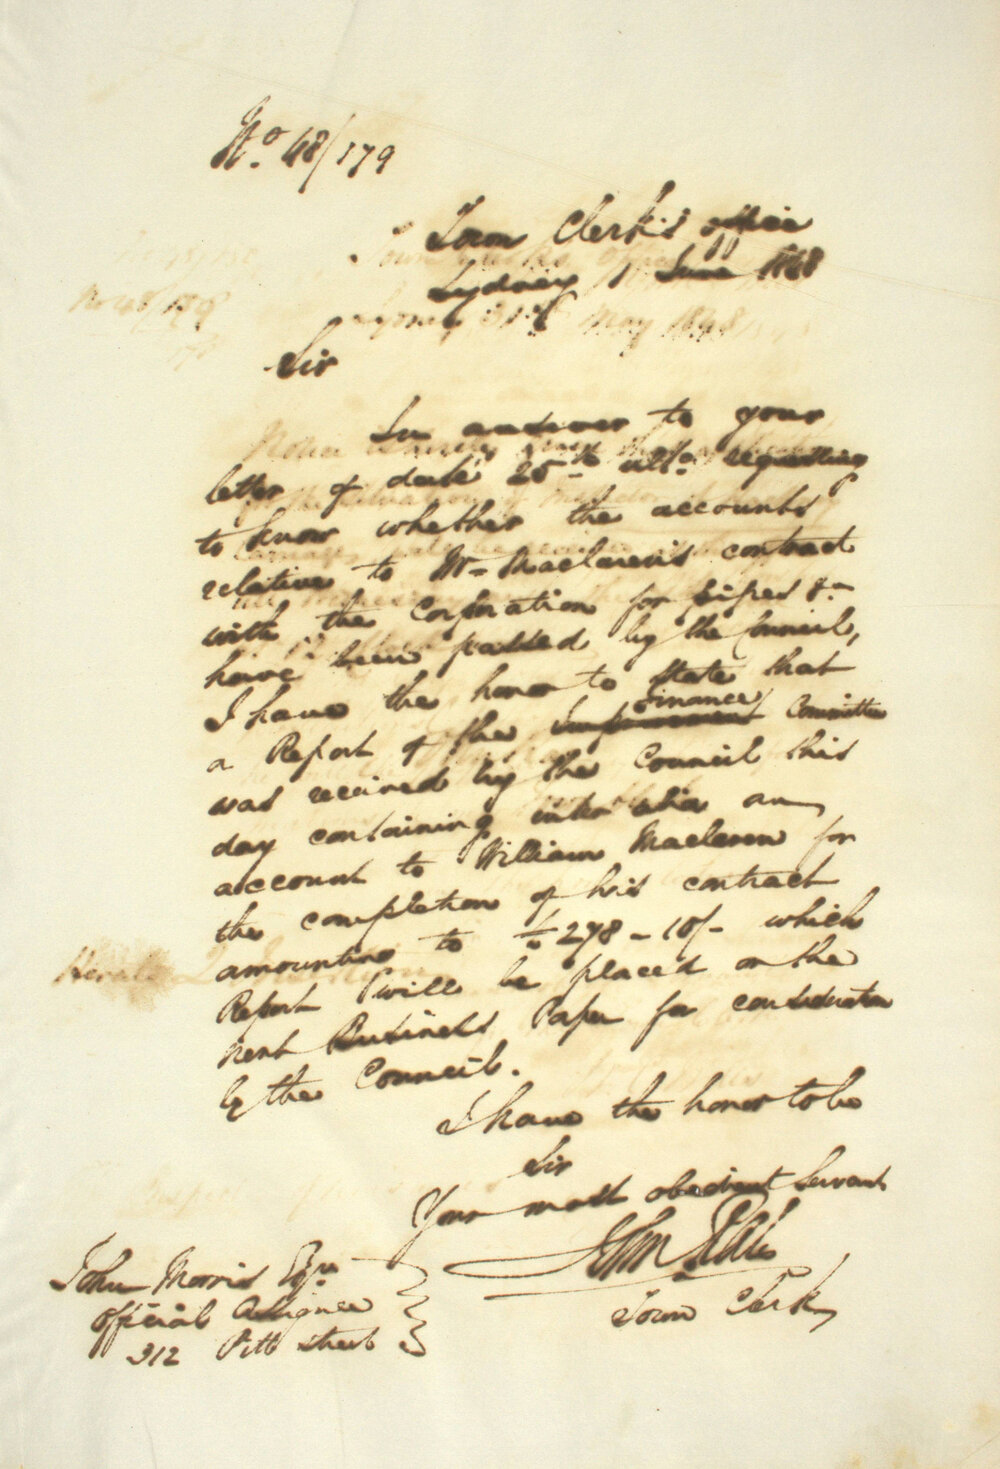 No. 48/179
Town Clerk's office
Sydney 1 June 1848
Sir
In answer to your
letter of date 25th ulto. requesting
to know whether the accounts
relative to Mr Maclaren's contract
with the Corporation for pipes &c
have been passed by the Council,
I have the honor to state that
a Report of the Improvement Finance Committee
was received by the Council this
day containing inter alia an
account to William Maclaren for
the completion of his contract
amounting to £278-10/- which
Report will be placed on the
next Business Paper for consideration
by the Council.
I have the honor to be
Sir
Your most obedient Servant
John
Town Clerk
John Morris Esqr
Official Assignee
312 Pitt Street